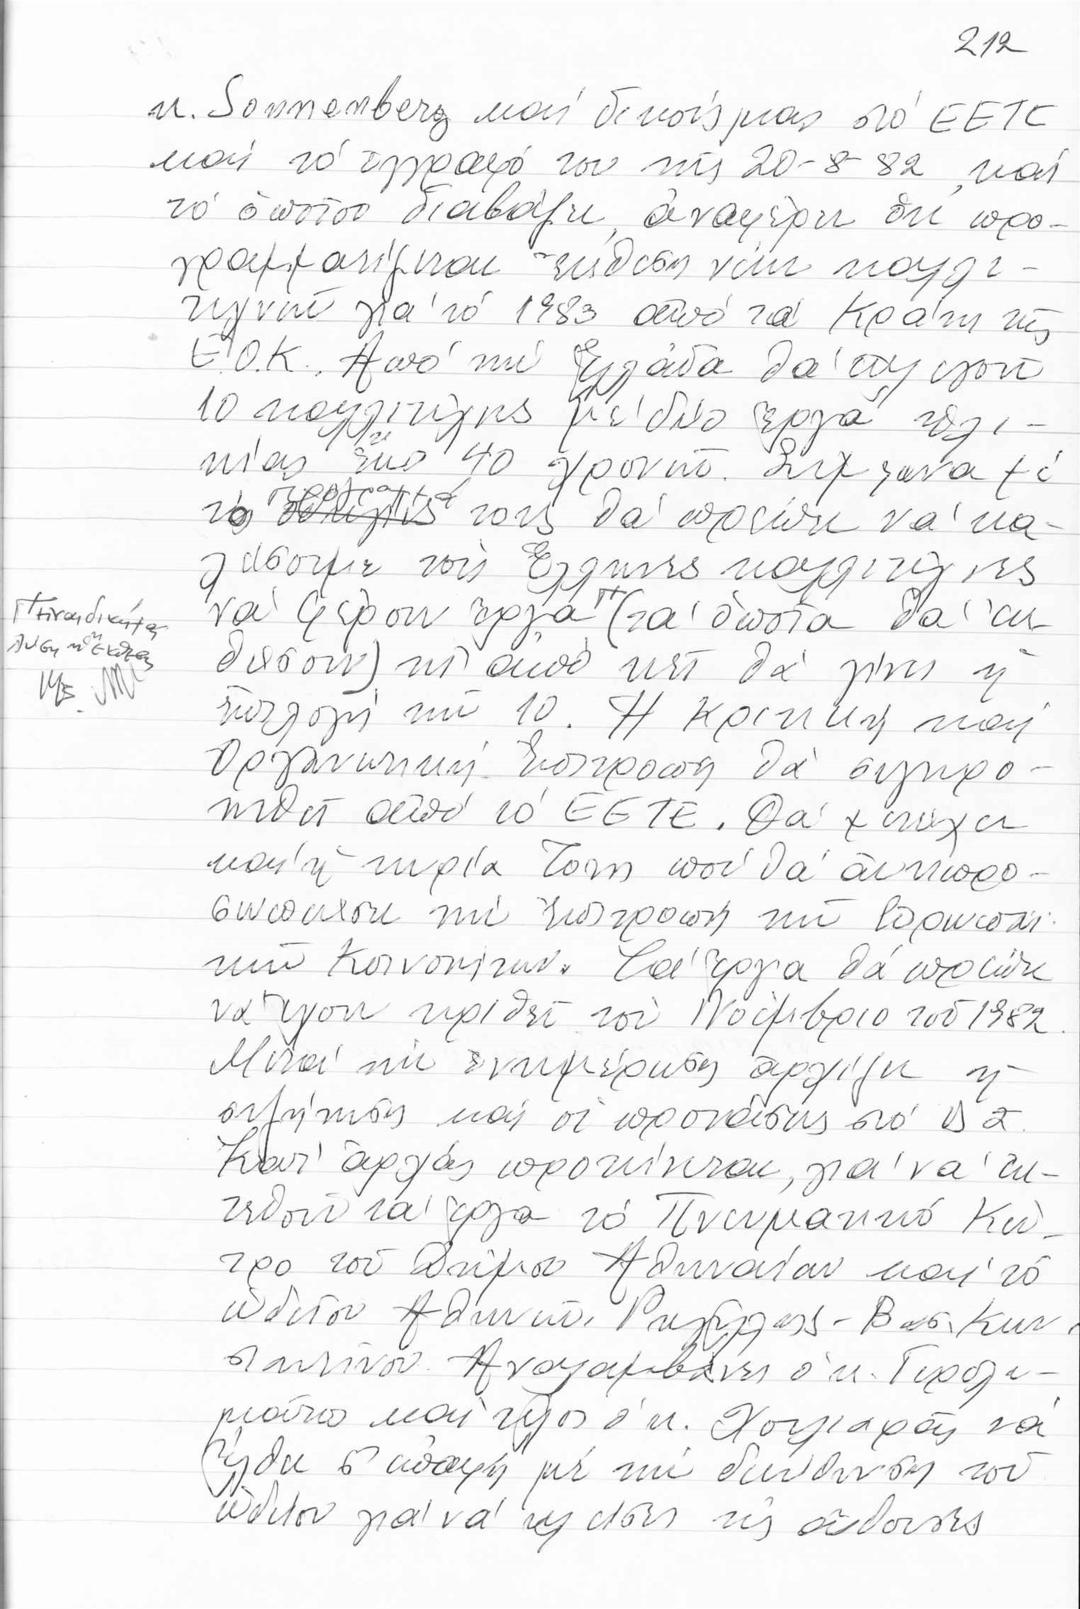 212
κ. Sonnenberg καί δικοῖς μας στό ΕΕΤΕ
καί τό ἔγγραφό του τῆς 20-8-82, καί
τό ὁποῖον διαβάζει, ἀναφέρει ὅτι προ-
γραμματίζεται ἔκθεση νέων καλλι-
τεχνῶν γιά τό 1983 ἀπό τά Κράτη τῆς
Ε.Ο.Κ. Ἀπό τήν Ἑλλάδα θά ἐπιλεγοῦν
10 καλλιτέχνες μέ δύο ἔργα ἡλι-
κίας ἕως 40 χρονῶν. Σύμφωνα μέ
τό πρόγραμμά τους θά πρέπει νά κα-
λέσουμε τούς Ἕλληνες καλλιτέχνες
νά φέρουν ἔργα (τά ὁποῖα θά ἐκ
θέσουν) κι ἀπό κεῖ θά γίνει ἡ
ἐπιλογή τῶν 10. Ἡ Κριτική καί
Ὀργανωτική Ἐπιτροπή θά συγκρο-
τηθεῖ ἀπό τό ΕΕΤΕ. Θά μετέχει
καί ἡ κυρία πού θά ἀντιπρο-
σωπεύσει τήν Ἐπιτροπή τῶν Εὐρωπαϊ-
κῶν Κοινοτήτων. Τά ἔργα θά πρέπει
νά ἔχουν κριθεῖ τόν Νοέμβριο τοῦ 1982.
Μετά τήν ἐνημέρωση ἀρχίζει ἡ
συζήτηση καί οἱ προτάσεις στό Δ.Σ.
Κατ' ἀρχάς προτείνεται, γιά νά ἐκ-
τεθοῦν τά ἔργα τό Πνευματικό Κέν-
τρο τοῦ Δήμου Ἀθηναίων καί τό
ᾠδεῖον Ἀθηνῶν, Ρηγίλλης - Βασ. Κων
σταντίνου. Ἀναλαμβάνει ὁ κ. Γερολυ-
μάτος καί τέλος ὁ κ. Χουλιαρᾶς νά
ἔλθει σ' ἐπαφή μέ τήν διεύθυνση τοῦ
ᾠδείου γιά νά τῆς αἴθουσες